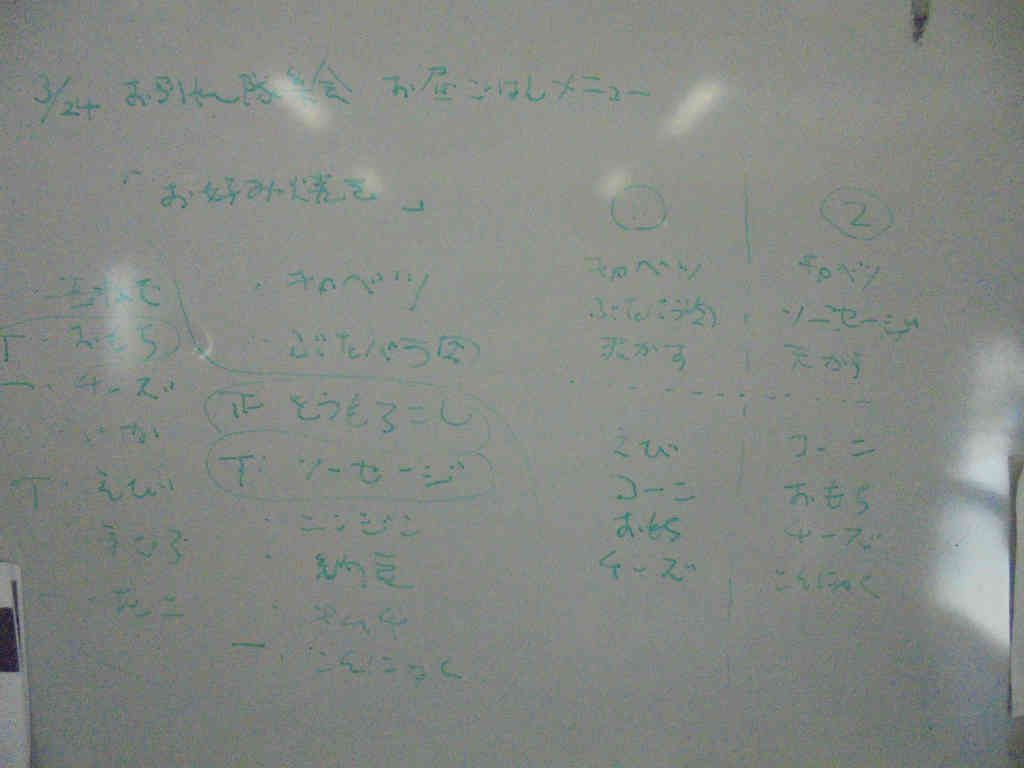 3/24 お別れ会 お昼ごはんメニュー
「お好み焼き」
・キャベツ
・ぶたバラ肉
正 とうもろこし
T ソーセージ
・ニンジン
・納豆
・キムチ
一・こんにゃく
玉ねぎ
T・おもち
一・チーズ
・いか
T・えび
①
キャベツ
ぶたバラ肉
天かす
えび
コーン
おもち
チーズ
②
キャベツ
ソーセージ
天かす
コーン
おもち
チーズ
こんにゃく